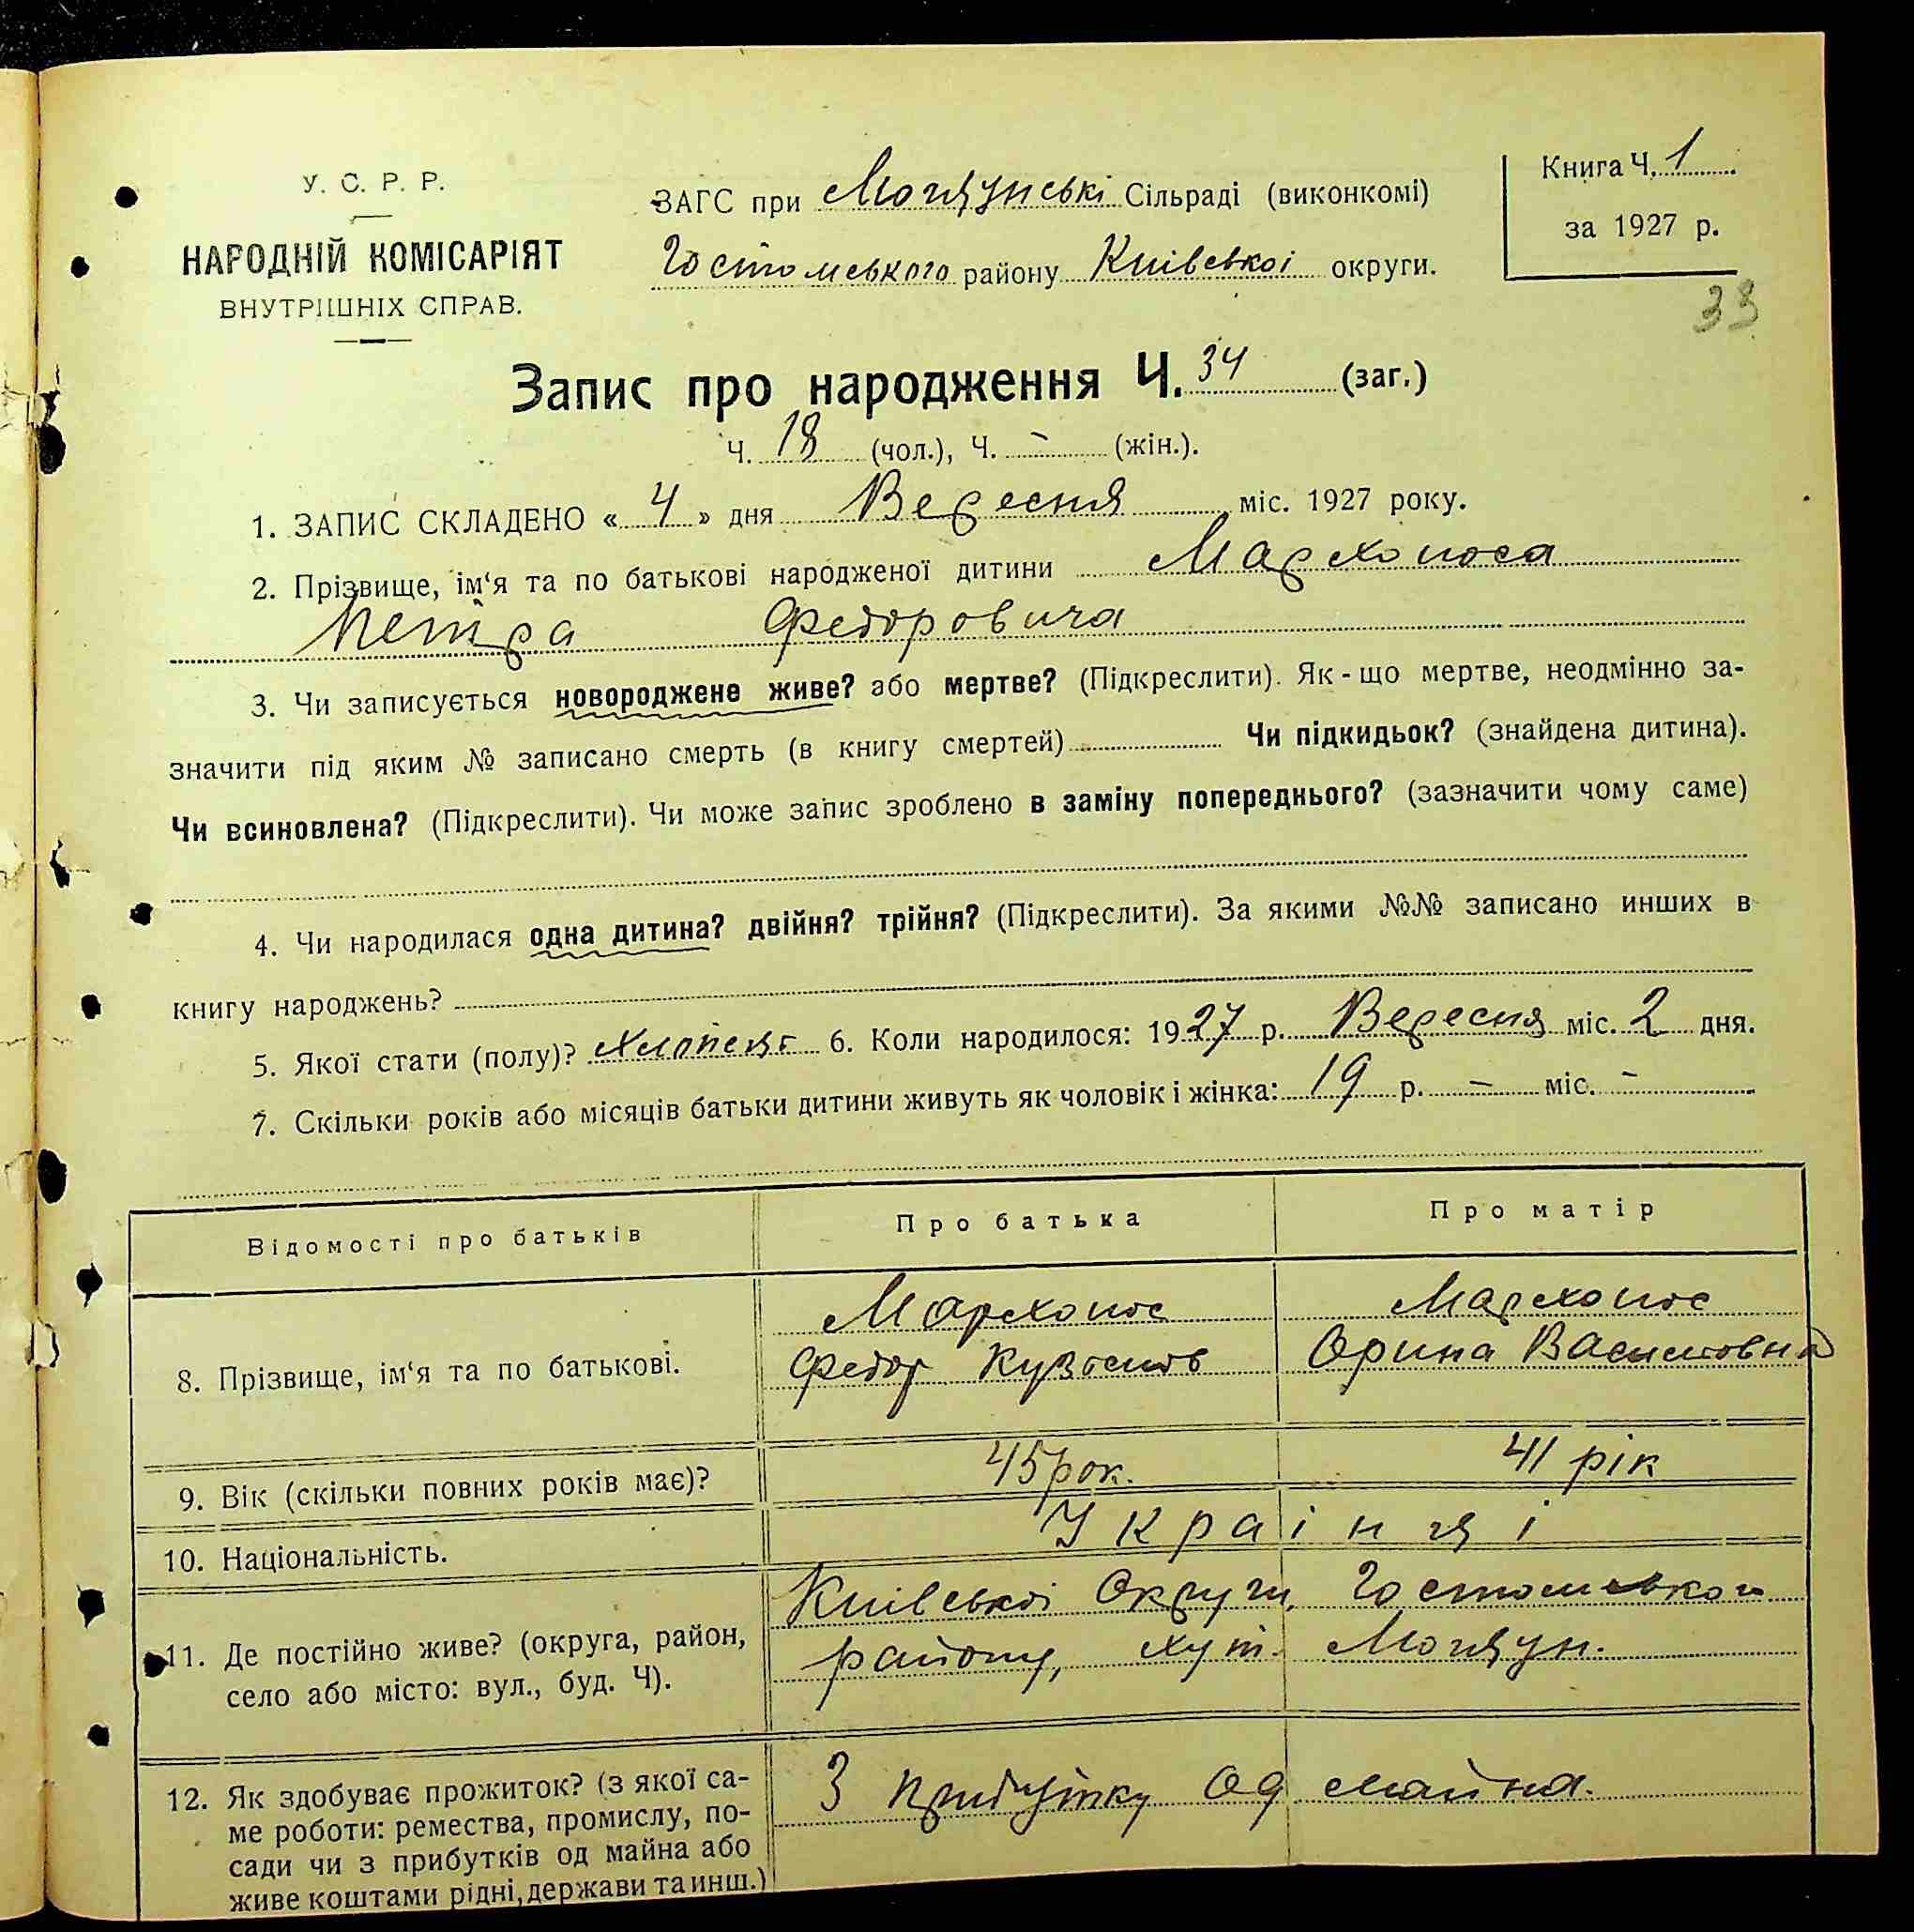 У. С. Р. Р.
НАРОДНІЙ КОМІСАРІЯТ
ВНУТРІШНІХ СПРАВ.
ЗАГС при Мощунські Сільраді (виконкомі)
Гостомського району Київськоі округи.
Книга Ч. 1
за 1927 р.
33
Запис про народження Ч. 34 (заг.)
Ч. 18 (чол.), Ч. - (жін.).
1. ЗАПИС СКЛАДЕНО « 4 » дня Вересня міс. 1927 року.
2. Прізвище, ім‘я та по батькові народженої дитини Мархоноса
Петра Федоровича
3. Чи записується новороджене живе? або мертве? (Підкреслити). Як-що мертве, неодмінно за-
значити під яким № записано смерть (в книгу смертей) Чи підкидьок? (знайдена дитина).
Чи всиновлена? (Підкреслити). Чи може запис зроблено в заміну попереднього? (зазначити чому саме)
4. Чи народилася одна дитина? двійня? трійня? (Підкреслити). За якими №№ записано инших в
книгу народжень?
5. Якої стати (полу)? 6. Коли народилося: 1927 р. Вересня міс. 2 дня.
7. Скільки років або місяців батьки дитини живуть як чоловік і жінка: 19 р. - міс. -
Відомості про батьків Про батька Про матір
8. Прізвище, ім‘я та по батькові.
Мархонос
Федор
Мархонос
Орина Василовна
9. Вік (скільки повних років має)? 45 рок. 41 рік
10. Національність. Украінці
11. Де постійно живе? (округа, район,
село або місто: вул., буд. Ч).
Київськоі Округи, Гостомського
району, хут. Мощун.
12. Як здобуває прожиток? (з якої са-
ме роботи: ремества, промислу, по-
сади чи з прибутків од майна або
живе коштами рідні, держави та инш.)
З прибутку Од майна.